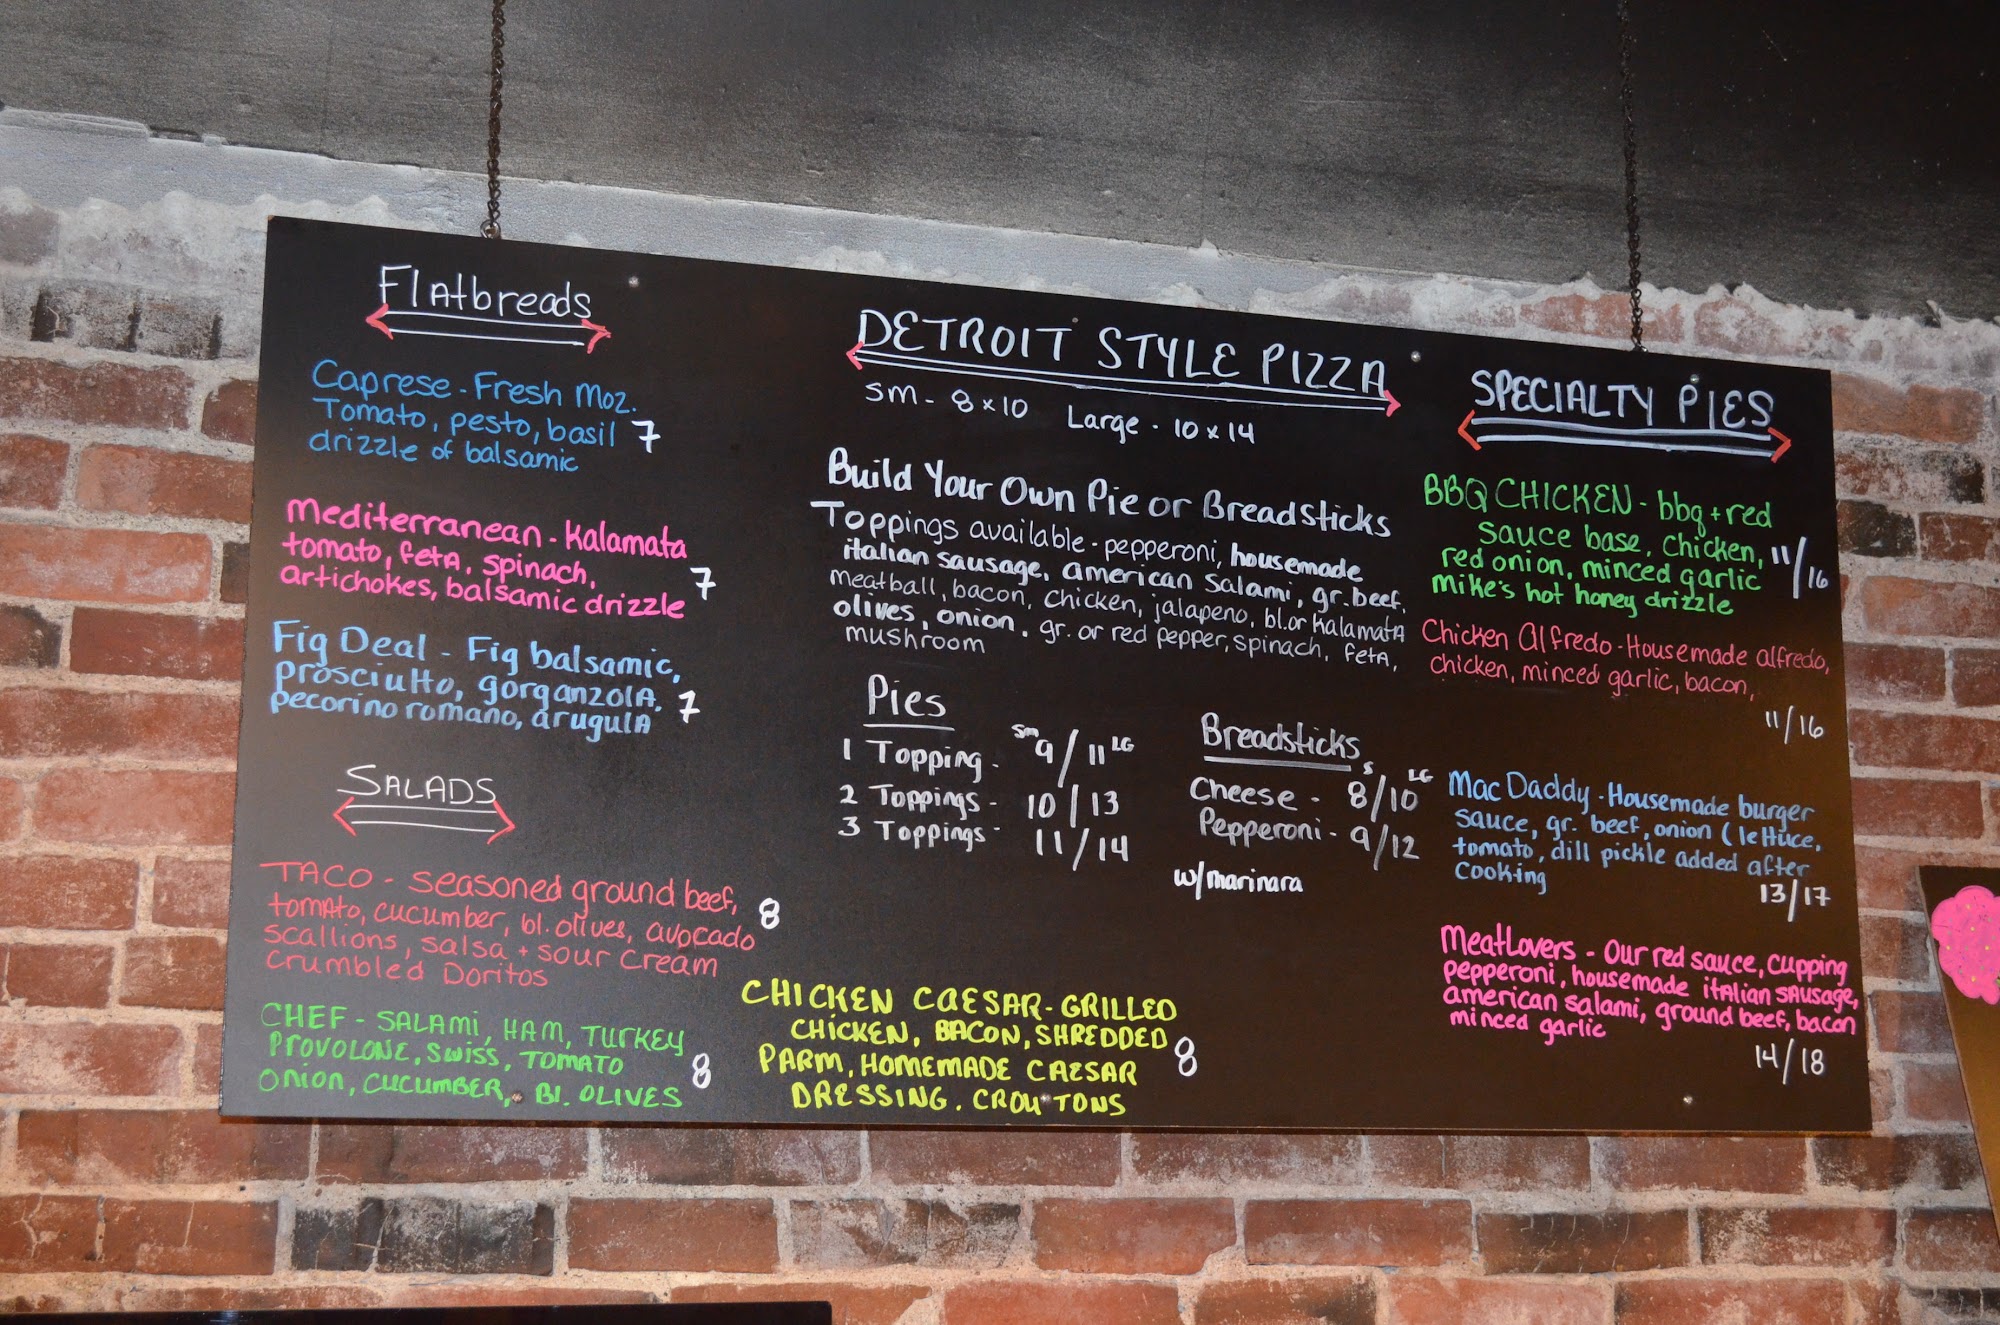 Flatbreads
Caprese - Fresh Moz.
Tomato, pesto, basil 7
drizzle of balsamic
Mediterranean - Kalamata
tomato, feta, spinach,
artichokes, balsamic drizzle 7
Fig Deal - Fig balsamic,
prosciutto, gorganzola,
pecorino romano, arugula 7
SALADS
TACO - seasoned ground beef,
tomato, cucumber, bl. olives, avocado 8
scallions, salsa + sour cream
crumbled Doritos
CHEF - SALAMI, HAM, TURKEY
PROVOLONE, SWISS, TOMATO
ONION, CUCUMBER, Bl. OLIVES 8
DETROIT STYLE PIZZA
sm - 8x10 Large - 10x14
Build Your Own Pie or Breadsticks
Toppings available - pepperoni, housemade
italian sausage, american salami, gr. beef,
meatball, bacon, chicken, jalapeno, bl. or kalamata
olives, onion, gr. or red pepper, spinach, feta,
mushroom
Pies
1 Topping - sm 9/11 LG
2 Toppings - 10/13
3 Toppings - 11/14
Breadsticks
S LG
Cheese - 8/10
Pepperoni - 9/12
w/marinara
CHICKEN CAESAR - GRILLED
CHICKEN, BACON, SHREDDED
PARM, HOMEMADE CAESAR 8
DRESSING, CROUTONS
SPECIALTY PIES
BBQ CHICKEN - bbq + red
sauce base, chicken,
red onion, minced garlic 11/16
mike's hot honey drizzle
Chicken Alfredo - Housemade alfredo,
chicken, minced garlic, bacon,
11/16
Mac Daddy - Housemade burger
sauce, gr. beef, onion (lettuce,
tomato, dill pickle added after
cooking
13/17
MeatLovers - Our red sauce, cupping
pepperoni, housemade italian sausage,
american salami, ground beef, bacon
minced garlic
14/18